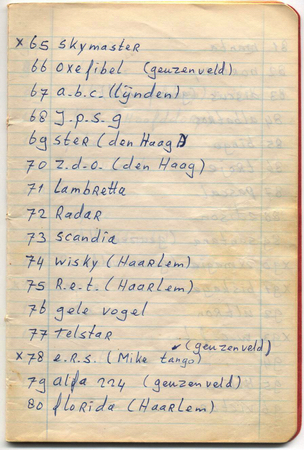 x 65 skymaster
66 oxefibel (geuzenveld)
67 a.b.c. (Lijnden)
68 J.p.s.g
69 ster (den Haag)
70 z.d.o. (den Haag)
71 lambretta
72 Radar
73 scandia
74 wisky (Haarlem)
75 R.e.t. (Haarlem)
76 gele vogel
77 Telstar
(geuzenveld)
x 78 e.R.S. (Mike tango)
79 alfa 224 (geuzenveld)
80 florida (Haarlem)